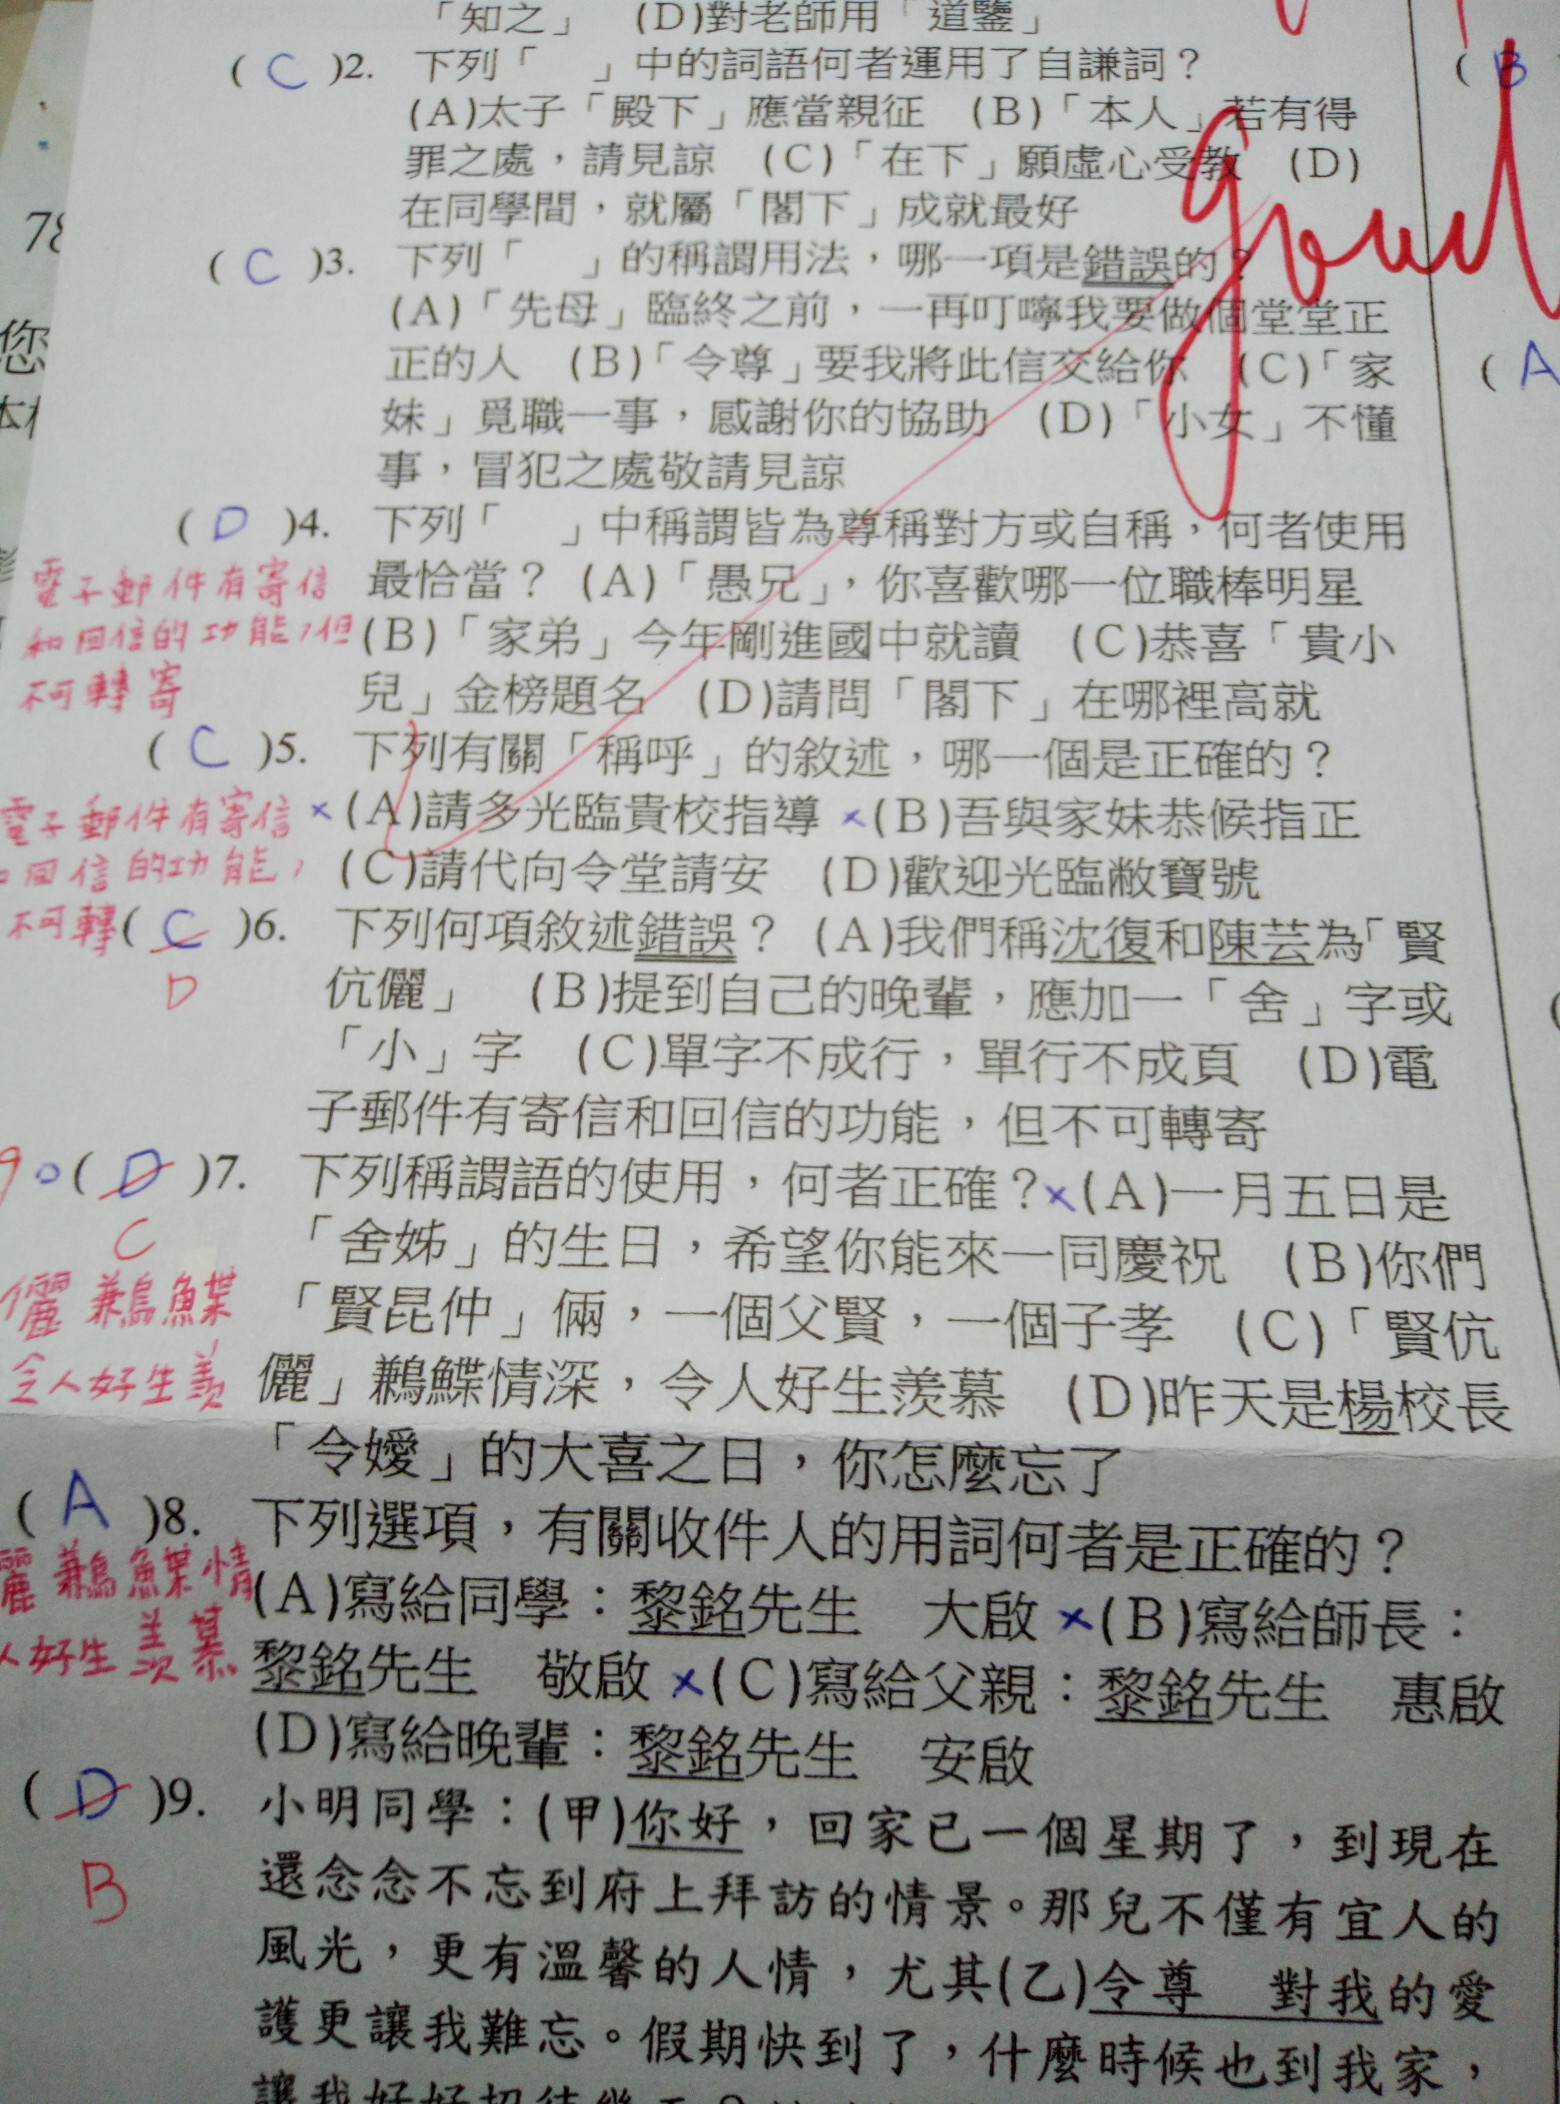 「知之」 (D)對老師用「道鑒」
( C )2. 下列「 」中的詞語何者運用了自謙詞？
(A)太子「殿下」應當親征 (B)「本人」若有得
罪之處，請見諒 (C)「在下」願虛心受教 (D)
在同學間，就屬「閣下」成就最好
( C )3. 下列「 」的稱謂用法，哪一項是錯誤的？
(A)「先母」臨終之前，一再叮嚀我要做個堂堂正
正的人 (B)「令尊」要我將此信交給你 (C)「家
妹」覓職一事，感謝你的協助 (D)「小女」不懂
事，冒犯之處敬請見諒
( D )4. 下列「 」中稱謂皆為尊稱對方或自稱，何者使用
最恰當？ (A)「愚兄」，你喜歡哪一位職棒明星
(B)「家弟」今年剛進國中就讀 (C)恭喜「貴小
兒」金榜題名 (D)請問「閣下」在哪裡高就
電子郵件有寄信
和回信的功能，但
不可轉寄
( C )5. 下列有關「稱呼」的敘述，哪一個是正確的？
×(A)請多光臨貴校指導 ×(B)吾與家妹恭候指正
(C)請代向令堂請安 (D)歡迎光臨敝寶號
電子郵件有寄信
回信的功能，
不可轉
( C )6. 下列何項敘述錯誤？ (A)我們稱沈復和陳芸為「賢
D
伉儷」 (B)提到自己的晚輩，應加一「舍」字或
「小」字 (C)單字不成行，單行不成頁 (D)電
子郵件有寄信和回信的功能，但不可轉寄
( D )7. 下列稱謂語的使用，何者正確？×(A)一月五日是
C
「舍姊」的生日，希望你能來一同慶祝 (B)你們
「賢昆仲」倆，一個父賢，一個子孝 (C)「賢伉
儷」鶼鰈情深，令人好生羨慕 (D)昨天是楊校長
「令嬡」的大喜之日，你怎麼忘了
儷 鶼鰈
令人好生羨
( A )8. 下列選項，有關收件人的用詞何者是正確的？
(A)寫給同學：黎銘先生 大啟 ×(B)寫給師長：
黎銘先生 敬啟 ×(C)寫給父親：黎銘先生 惠啟
(D)寫給晚輩：黎銘先生 安啟
鶼鰈情
人好生羨慕
( D )9. 小明同學：(甲)你好，回家已一個星期了，到現在
B
還念念不忘到府上拜訪的情景。那兒不僅有宜人的
風光，更有溫馨的人情，尤其(乙)令尊 對我的愛
護更讓我難忘。假期快到了，什麼時候也到我家，
讓我好好招待幾天？
good
( B
( A
78
您